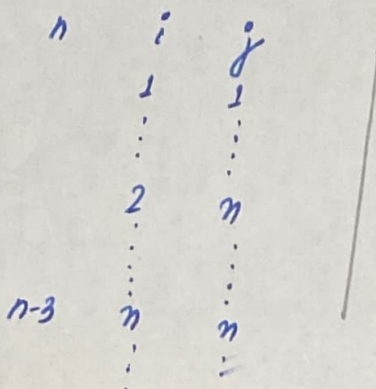 n i j
1 1
⋮ ⋮
2 n
⋮ ⋮
n-3 n n
⋮ ⋮